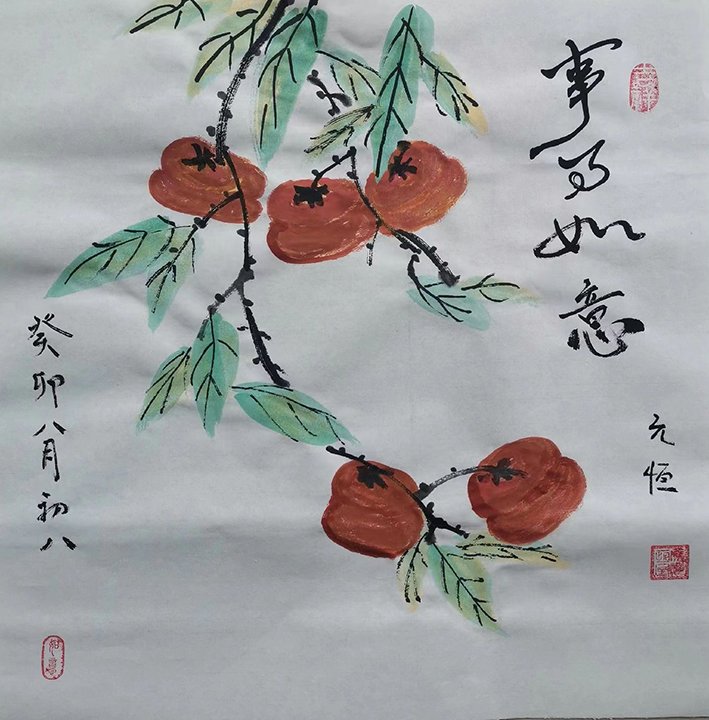 事事如意
元恒
癸卯八月初八